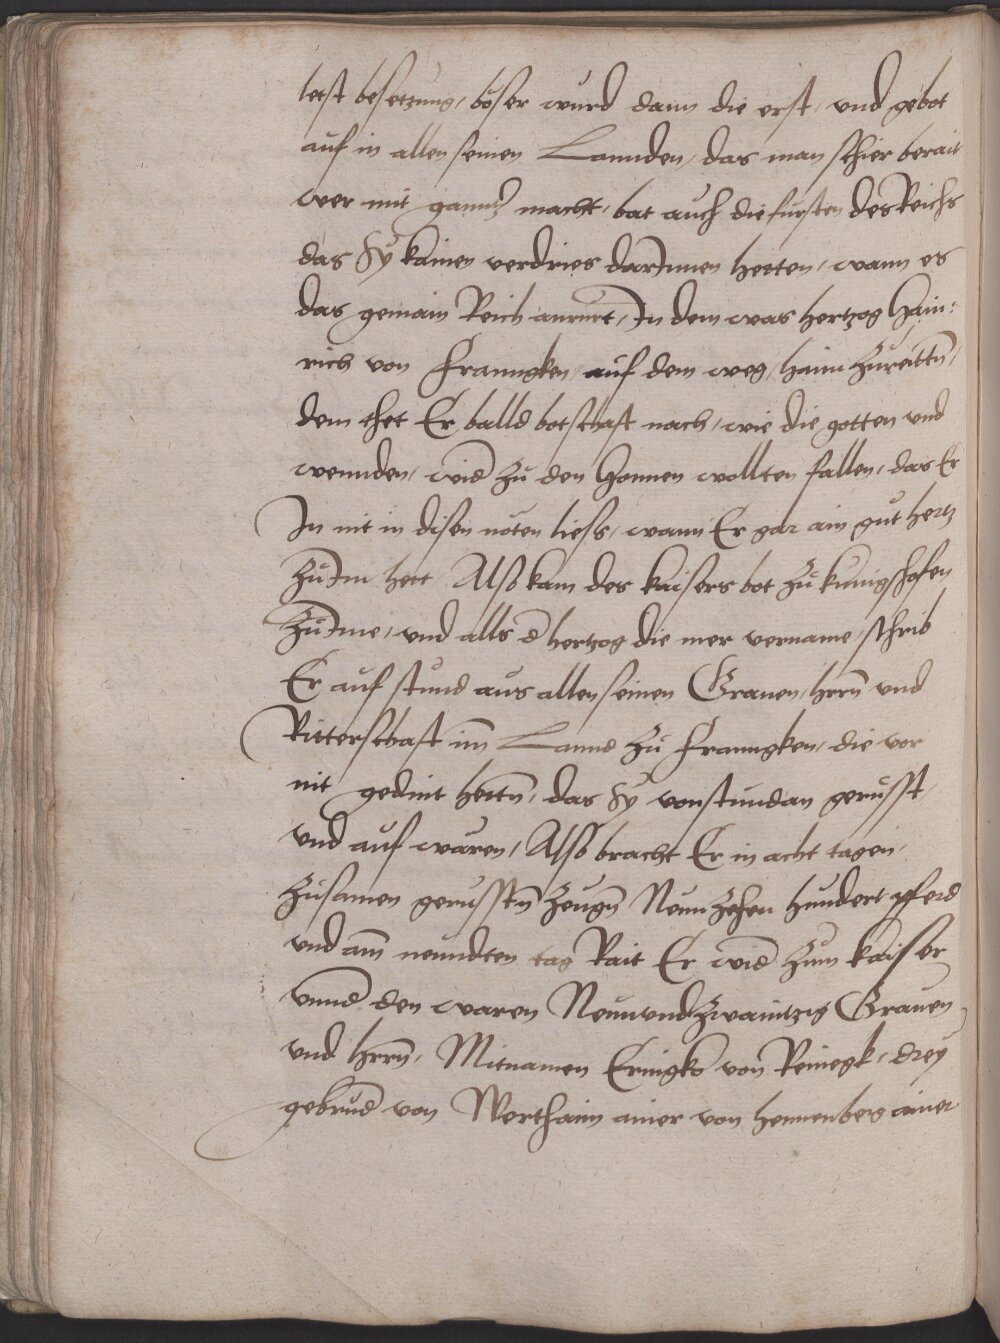 letst besetzung, böser wurd dann die erst, und gebot
auf in allen seinen Lannden, das man schier berait
wer mit gantz macht, bat auch die fursten des Reichs
das Sy kainen verdries darInnen hetten, wann es
das gemain Reich anrurt, In dem was hertzog Hain:
rich von Franngken, auf dem weg, haim zureittn̄,
dem thet Er balld botschaft nach, wie die gotten und
wennden, wid̄ zu den Honnen wollten fallen, das Er
In nit in disen nöten liess, wann Er gar ain gut hertz
zu Im hett, Also kam des kaisers bot zu kunigshofen
zu Ime, und alls d̄ hertzog die mer vername, schrib
Er auf stund aus allen seinen Grauen, hrrn̄ und
Ritterschaft im̄ Lannd zu Franngken, die vor
nit gedint hettn̄, das Sy von stundan gerusst,
und auf waren, Also bracht Er in acht tagen,
zusamen gerusstn̄ zeugn̄ Neunzehen hundert pferd
und am̄ neundten tag Rait Er wid̄ zum kaiser
unnd̄ den waren Neunundzwaintzig Grauen
und hrrn̄, Mitnamen Eringko von Reinegk, drey
gebrud̄ von Werthaim ainer von hennenberg ainer